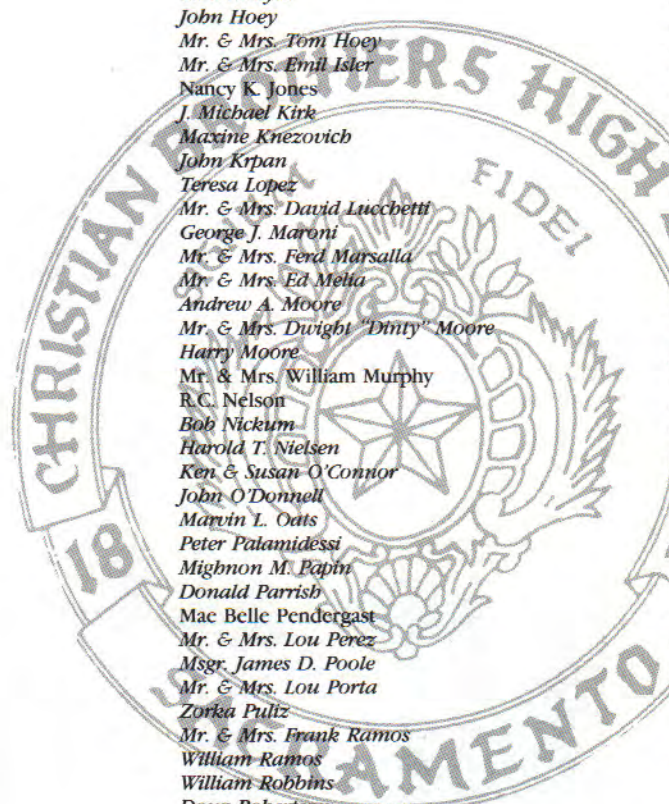 John Hoey
Mr. & Mrs. Tom Hoey
Mr. & Mrs. Emil Isler
Nancy K. Jones
J. Michael Kirk
Maxine Knezovich
John Krpan
Teresa Lopez
Mr. & Mrs. David Lucchetti
George J. Maroni
Mr. & Mrs. Ferd Marsalla
Mr. & Mrs. Ed Melia
Andrew A. Moore
Mr. & Mrs. Dwight "Dinty" Moore
Harry Moore
Mr. & Mrs. William Murphy
R.C. Nelson
Bob Nickum
Harold T. Nielsen
Ken & Susan O'Connor
John O'Donnell
Marvin L. Oats
Peter Palamidessi
Mighnon M. Papin
Donald Parrish
Mae Belle Pendergast
Mr. & Mrs. Lou Perez
Msgr. James D. Poole
Mr. & Mrs. Lou Porta
Zorka Puliz
Mr. & Mrs. Frank Ramos
William Ramos
William Robbins
CHRISTIAN BROTHERS HIGH
SIGNUM FIDEI
18
SACRAMENTO